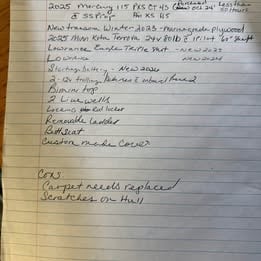 2025 Mercury 115 PXS CT 4S Purchased Less than
@ SS Prop Pro XS 115 Oct 24 50 Hours
New transom Winter-2025 - Marine grade plywood
2025 Minn Kota Terrova 24v 80lb @ iPilot 60" shaft
Lowrance Eagle Triple Shot - New 2025
Lowrance New 2024
Starting Battery - New 2024
2 - 12v trolling batteries & onboard
Bimini top
2 Livewells
Locking Rod locker
Removable Ladder
Butt Seat
Custom made Cover
Cons
Carpet needs replaced
Scratches on Hull